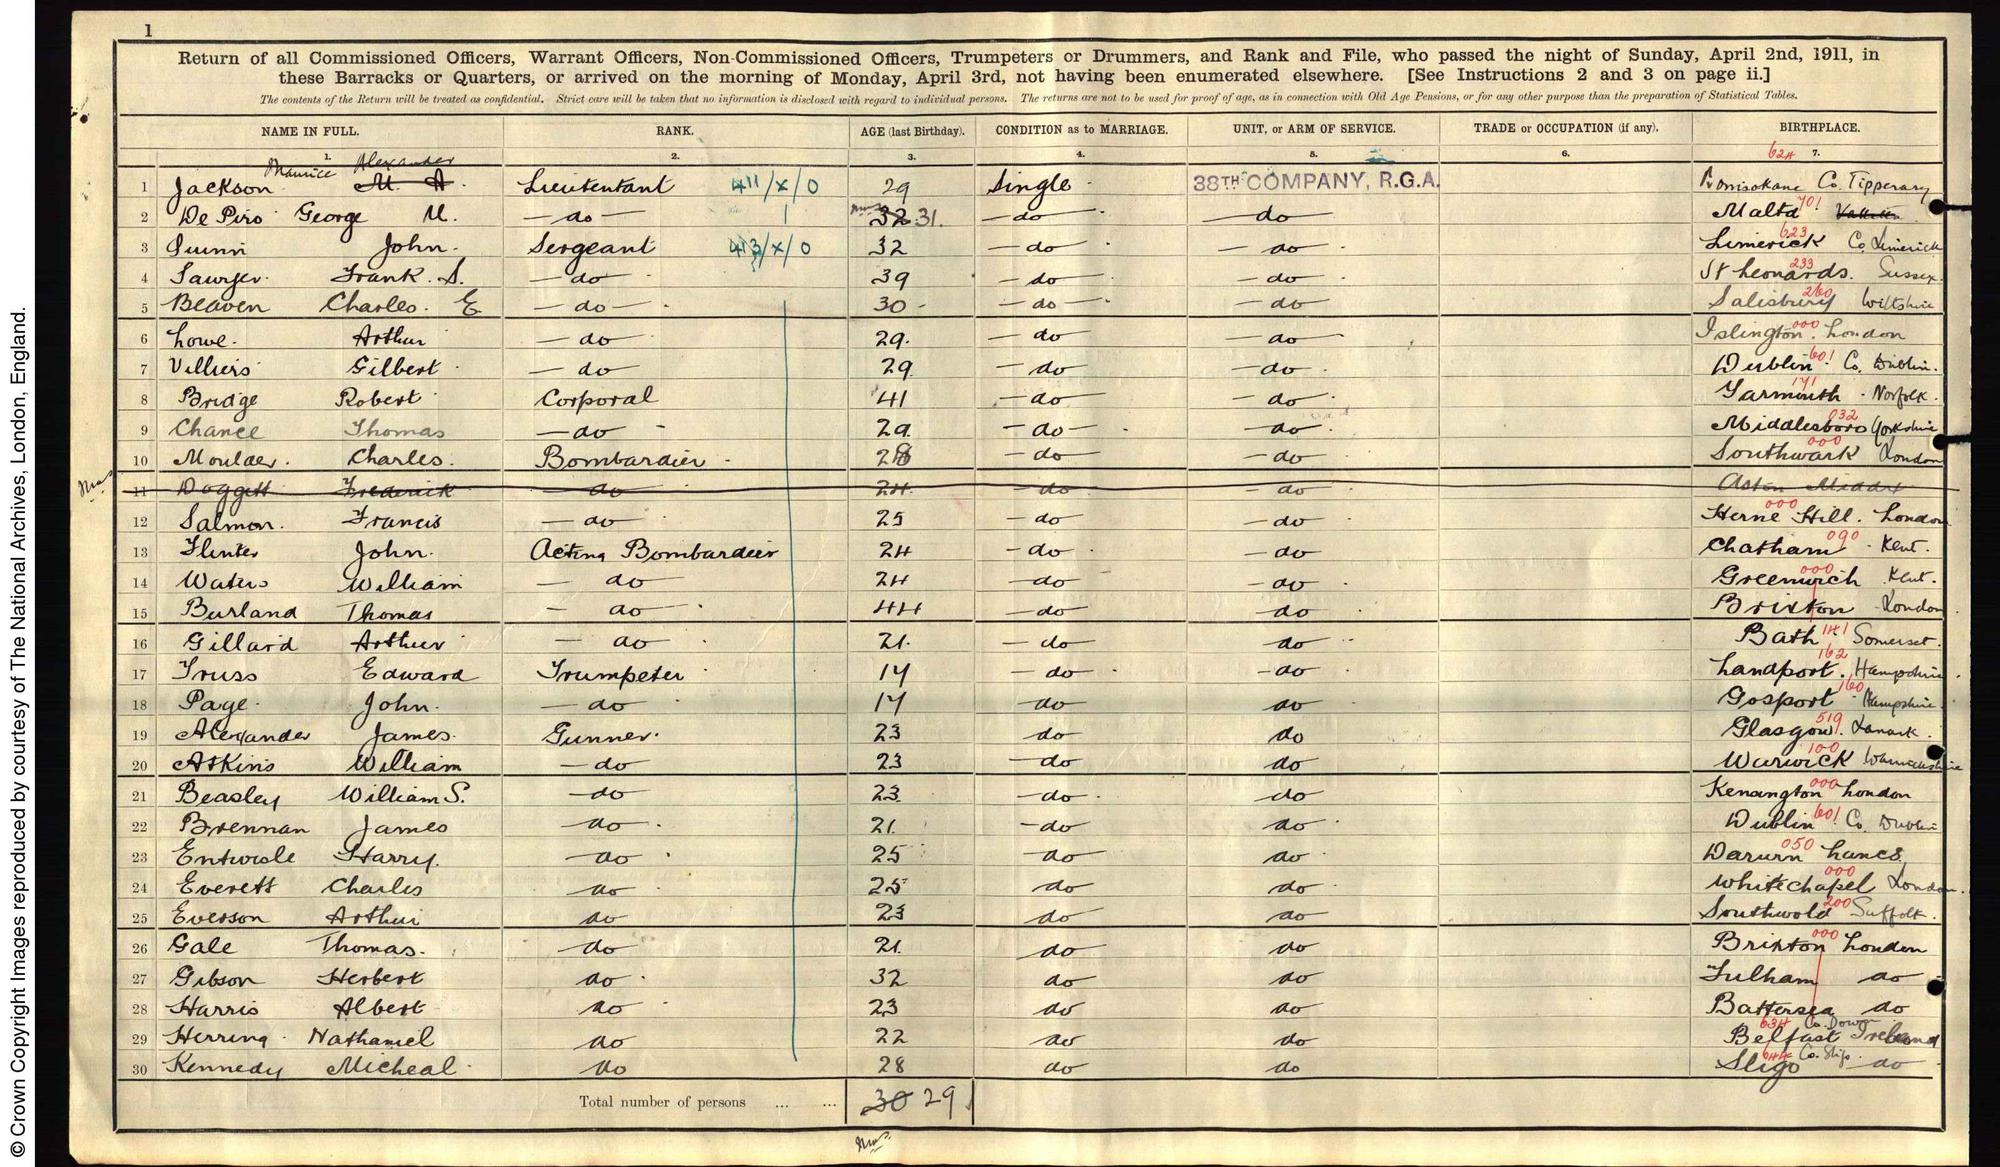 1
Return of all Commissioned Officers, Warrant Officers, Non-Commissioned Officers, Trumpeters or Drummers, and Rank and File, who passed the night of Sunday, April 2nd, 1911, in
these Barracks or Quarters, or arrived on the morning of Monday, April 3rd, not having been enumerated elsewhere. [See Instructions 2 and 3 on page ii.]
The contents of the Return will be treated as confidential. Strict care will be taken that no information is disclosed with regard to individual persons. The returns are not to be used for proof of age, as in connection with Old Age Pensions, or for any other purpose than the preparation of Statistical Tables.
NAME IN FULL. RANK. AGE (last Birthday). CONDITION as to MARRIAGE. UNIT, or ARM OF SERVICE. TRADE or OCCUPATION (if any). BIRTHPLACE.
1. 2. 3. 4. 5. 6. 7.
Maurice Alexander 624
1 Jackson M. A. Lieutentant 411/x/0 29 Single 38TH COMPANY, R.G.A. Borrisokane Co. Tipperary
2 De Piro George M. do 32 31. do do Malta 701 Valletta
3 Quinn John. Sergeant 413/x/0 32 do do Limerick 623 Co. Limerick
4 Sawyer. Frank. S. do 39 do do St Leonards. 233 Sussex.
5 Beaven Charles. E do 30 do do Salisbury 260 Wiltshire
6 Lowe. Arthur do 29. do do Islington. 000 London
7 Villiers Gilbert do 29 do do Dublin 601 Co. Dublin.
8 Bridge Robert Corporal 41 do do Yarmouth 171 Norfolk.
9 Chance Thomas do 29. do do Middlesboro 032 Yorkshire
10 Moulder. Charles. Bombardier 28 do do Southwark 000 London
11 Doggett Frederick do 24. do do Acton Middx
12 Salmon. Francis do 25 do do Herne Hill. 000 London
13 Flinter John. Acting Bombardier 24 do do Chatham 090 Kent.
14 Waters William do 24 do do Greenwich 000 Kent.
15 Burland Thomas do 44 do do Brixton London
16 Gillard Arthur do 21. do do Bath 141 Somerset.
17 Truss Edward Trumpeter 14 do do Landport. 162 Hampshire
18 Page John. do 14 do do Gosport 160 Hampshire
19 Alexander James. Gunner. 23 do do Glasgow. 519 Lanark.
20 Atkins William do 23 do do Warwick 100 Warwickshire
21 Beasley William S. do 23 do do Kensington 000 London
22 Brennan James do 21. do do Dublin 601 Co. Dublin
23 Entwisle Harry. do 25 do do Darwin 050 Lancs.
24 Everett Charles do 25 do do Whitechapel 000 London.
25 Everson Arthur do 23 do do Southwold 200 Suffolk.
26 Gale Thomas. do 21. do do Brixton 000 London
27 Gibson Herbert do 32 do do Fulham do
28 Harris Albert do 23 do do Battersea do
29 Herring Nathaniel do 22 do do Belfast 634 Co. Down Ireland
30 Kennedy Micheal do 28 do do Sligo 644 Co. Sligo. do
Total number of persons ... ... 30 29
© Crown Copyright Images reproduced by courtesy of The National Archives, London, England.